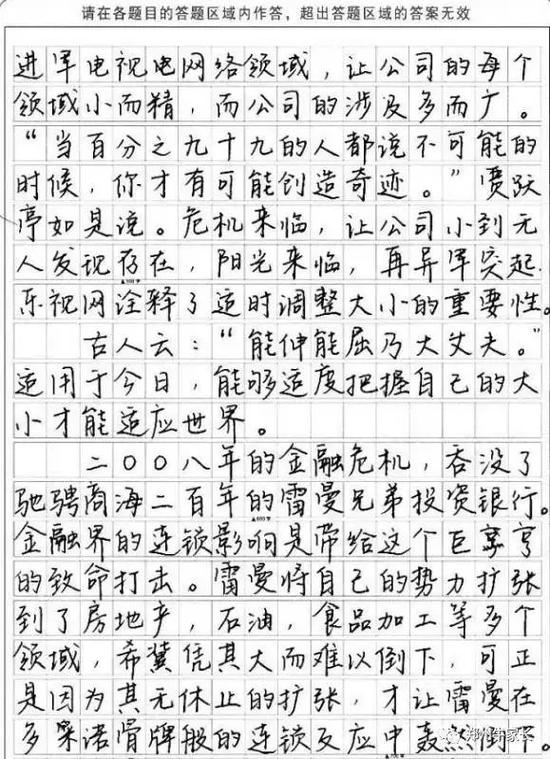 请在各题目的答题区域内作答，超出答题区域的答案无效
进军电视电网络领域，让公司的每个
领域小而精，而公司的涉及多而广。
“当百分之九十九的人都说不可能的
时候，你才有可能创造奇迹。”贾跃
亭如是说。危机来临，让公司小到无
人发现存在，阳光来临，再异军突起。
乐视网诠释了适时调整大小的重要性。
古人云：“能伸能屈乃大丈夫。”
适用于今日，能够适度把握自己的大
小才能适应世界。
二〇〇八年的金融危机，吞没了
驰骋商海二百年的雷曼兄弟投资银行。
金融界的连锁影响是带给这个巨亨
的致命打击。雷曼将自己的势力扩张
到了房地产，石油，食品加工等多个
领域，希冀凭其大而难以倒下，可正
是因为其无休止的扩张，才让雷曼在
多米诺骨牌般的连锁反应中轰然倒下。